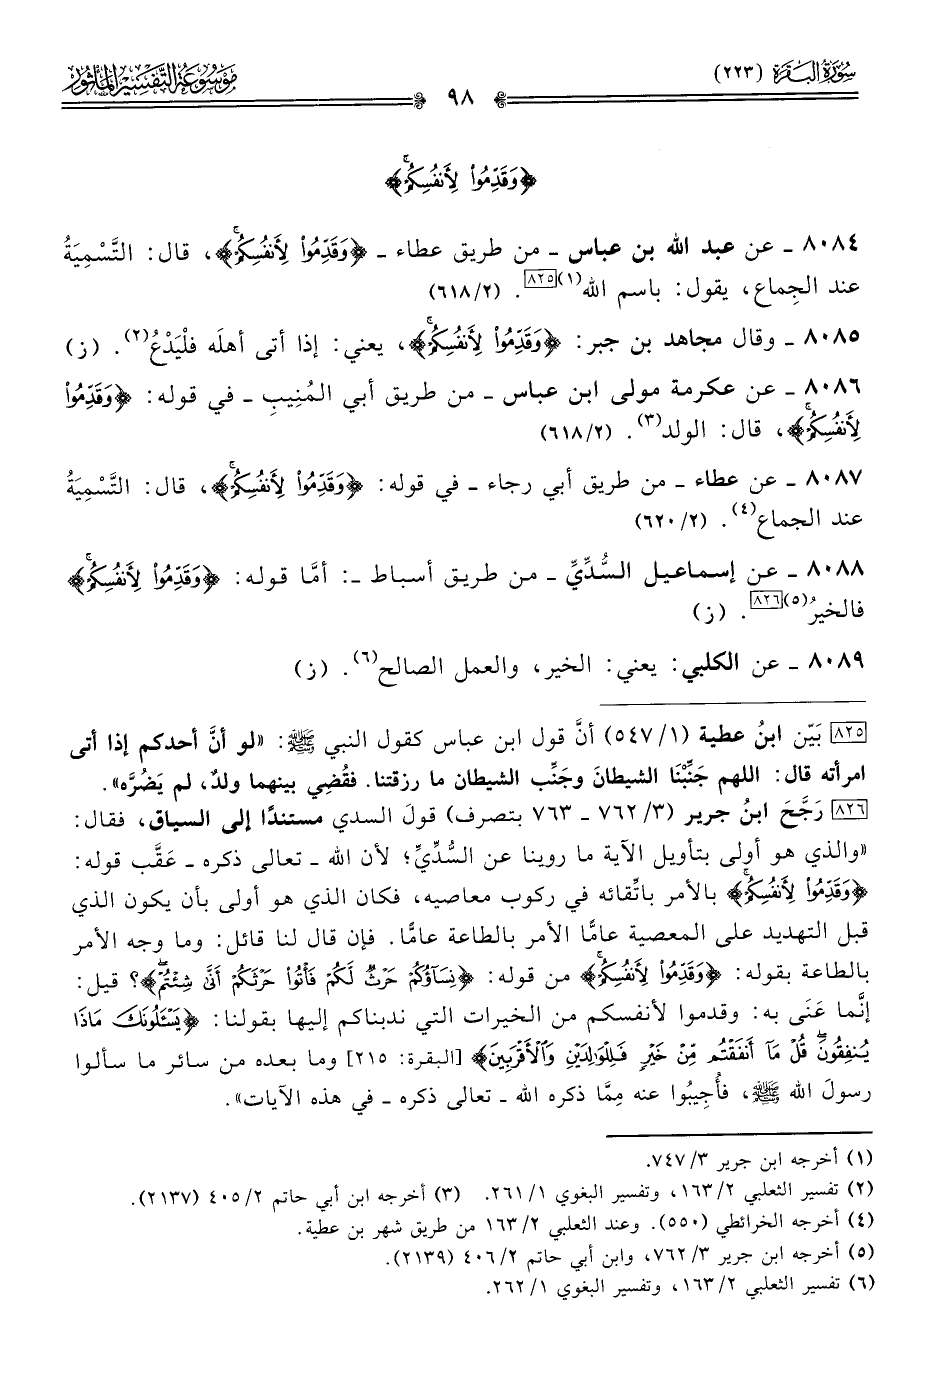 سُورَةُ البَقَرَة (٢٢٣)
٩٨
مَوْسُوعَةُ التَّفْسِيرِ المَأْثُور
﴿وَقَدِّمُوا۟ لِأَنفُسِكُمْۚ﴾
٨٠٨٤ ـ عن عبد الله بن عباس ـ من طريق عطاء ـ ﴿وَقَدِّمُوا۟ لِأَنفُسِكُمْۚ﴾، قال: التَّسْمِيَةُ
عند الجِماع، يقول: باسم الله(١)[٨٢٥]. (٦١٨/٢)
٨٠٨٥ ـ وقال مجاهد بن جبر: ﴿وَقَدِّمُوا۟ لِأَنفُسِكُمْۚ﴾، يعني: إذا أتى أهلَه فلْيَدْعُ(٢). (ز)
٨٠٨٦ ـ عن عكرمة مولى ابن عباس ـ من طريق أبي المُنِيبِ ـ في قوله: ﴿وَقَدِّمُوا۟
لِأَنفُسِكُمْۚ﴾، قال: الولد(٣). (٦١٨/٢)
٨٠٨٧ ـ عن عطاء ـ من طريق أبي رجاء ـ في قوله: ﴿وَقَدِّمُوا۟ لِأَنفُسِكُمْۚ﴾، قال: التَّسْمِيَةُ
عند الجماع(٤). (٦٢٠/٢)
٨٠٨٨ ـ عن إسماعيل السُّدِّيِّ ـ من طريق أسباط ـ: أمَّا قوله: ﴿وَقَدِّمُوا۟ لِأَنفُسِكُمْۚ﴾
فالخيرُ(٥)[٨٢٦]. (ز)
٨٠٨٩ ـ عن الكلبي: يعني: الخير، والعمل الصالح(٦). (ز)
[٨٢٥] بَيّن ابنُ عطية (٥٤٧/١) أنَّ قول ابن عباس كقول النبي ﷺ: «لو أنَّ أحدكم إذا أتى
امرأته قال: اللهم جَنِّبْنَا الشيطانَ وجَنِّب الشيطان ما رزقتنا. فقُضِي بينهما ولدٌ، لم يَضُرَّه».
[٨٢٦] رَجَّحَ ابنُ جرير (٧٦٢/٣ ـ ٧٦٣ بتصرف) قولَ السدي مستندًا إلى السياق، فقال:
«والذي هو أولى بتأويل الآية ما روينا عن السُّدِّيِّ؛ لأن الله ـ تعالى ذكره ـ عَقَّب قوله:
﴿وَقَدِّمُوا۟ لِأَنفُسِكُمْۚ﴾ بالأمر باتِّقائه في ركوب معاصيه، فكان الذي هو أولى بأن يكون الذي
قبل التهديد على المعصية عامًّا الأمر بالطاعة عامًّا. فإن قال لنا قائل: وما وجه الأمر
بالطاعة بقوله: ﴿وَقَدِّمُوا۟ لِأَنفُسِكُمْۚ﴾ من قوله: ﴿نِسَآؤُكُمْ حَرْثٌ لَّكُمْ فَأْتُوا۟ حَرْثَكُمْ أَنَّىٰ شِئْتُمْۖ﴾؟ قيل:
إنَّما عَنَى به: وقدموا لأنفسكم من الخيرات التي ندبناكم إليها بقولنا: ﴿يَسْـَٔلُونَكَ مَاذَا
يُنفِقُونَۖ قُلْ مَآ أَنفَقْتُم مِّنْ خَيْرٍ فَلِلْوَٰلِدَيْنِ وَٱلْأَقْرَبِينَ﴾ [البقرة: ٢١٥] وما بعده من سائر ما سألوا
رسولَ الله ﷺ، فأُجِيبُوا عنه مِمَّا ذكره الله ـ تعالى ذكره ـ في هذه الآيات».
(١) أخرجه ابن جرير ٧٤٧/٣.
(٢) تفسير الثعلبي ١٦٣/٢، وتفسير البغوي ٢٦١/١. (٣) أخرجه ابن أبي حاتم ٤٠٥/٢ (٢١٣٧).
(٤) أخرجه الخرائطي (٥٥٠). وعند الثعلبي ١٦٣/٢ من طريق شهر بن عطية.
(٥) أخرجه ابن جرير ٧٦٢/٣، وابن أبي حاتم ٤٠٦/٢ (٢١٣٩).
(٦) تفسير الثعلبي ١٦٣/٢، وتفسير البغوي ٢٦٢/١.